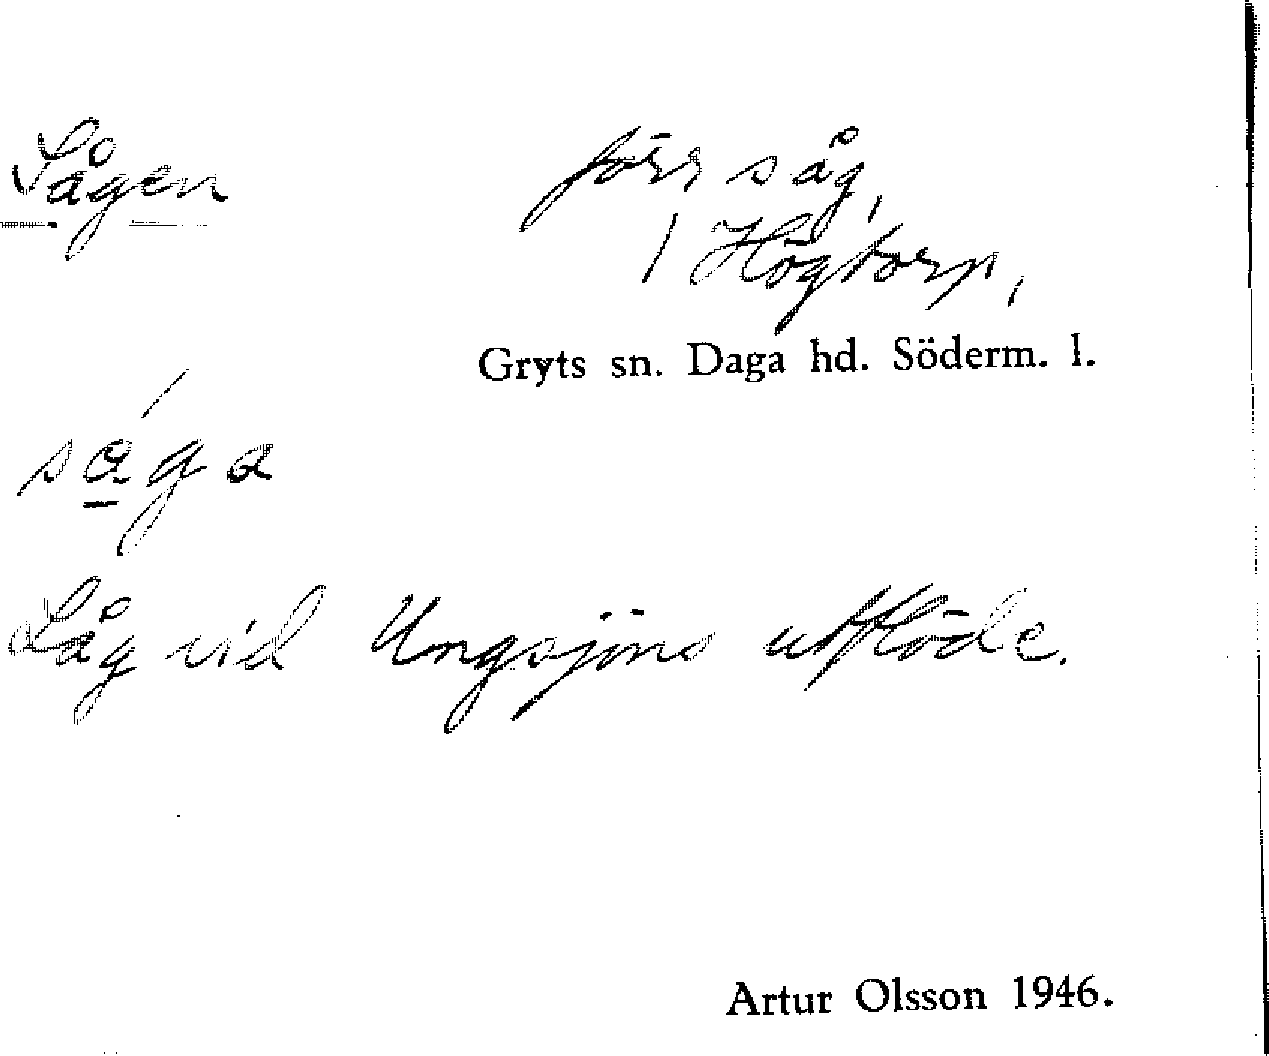 Sågen
förr såg,
/ Högtorp,
Gryts sn. Daga hd. Söderm. l.
såga
Låg vid Ungsjöns utflöde.
Artur Olsson 1946.